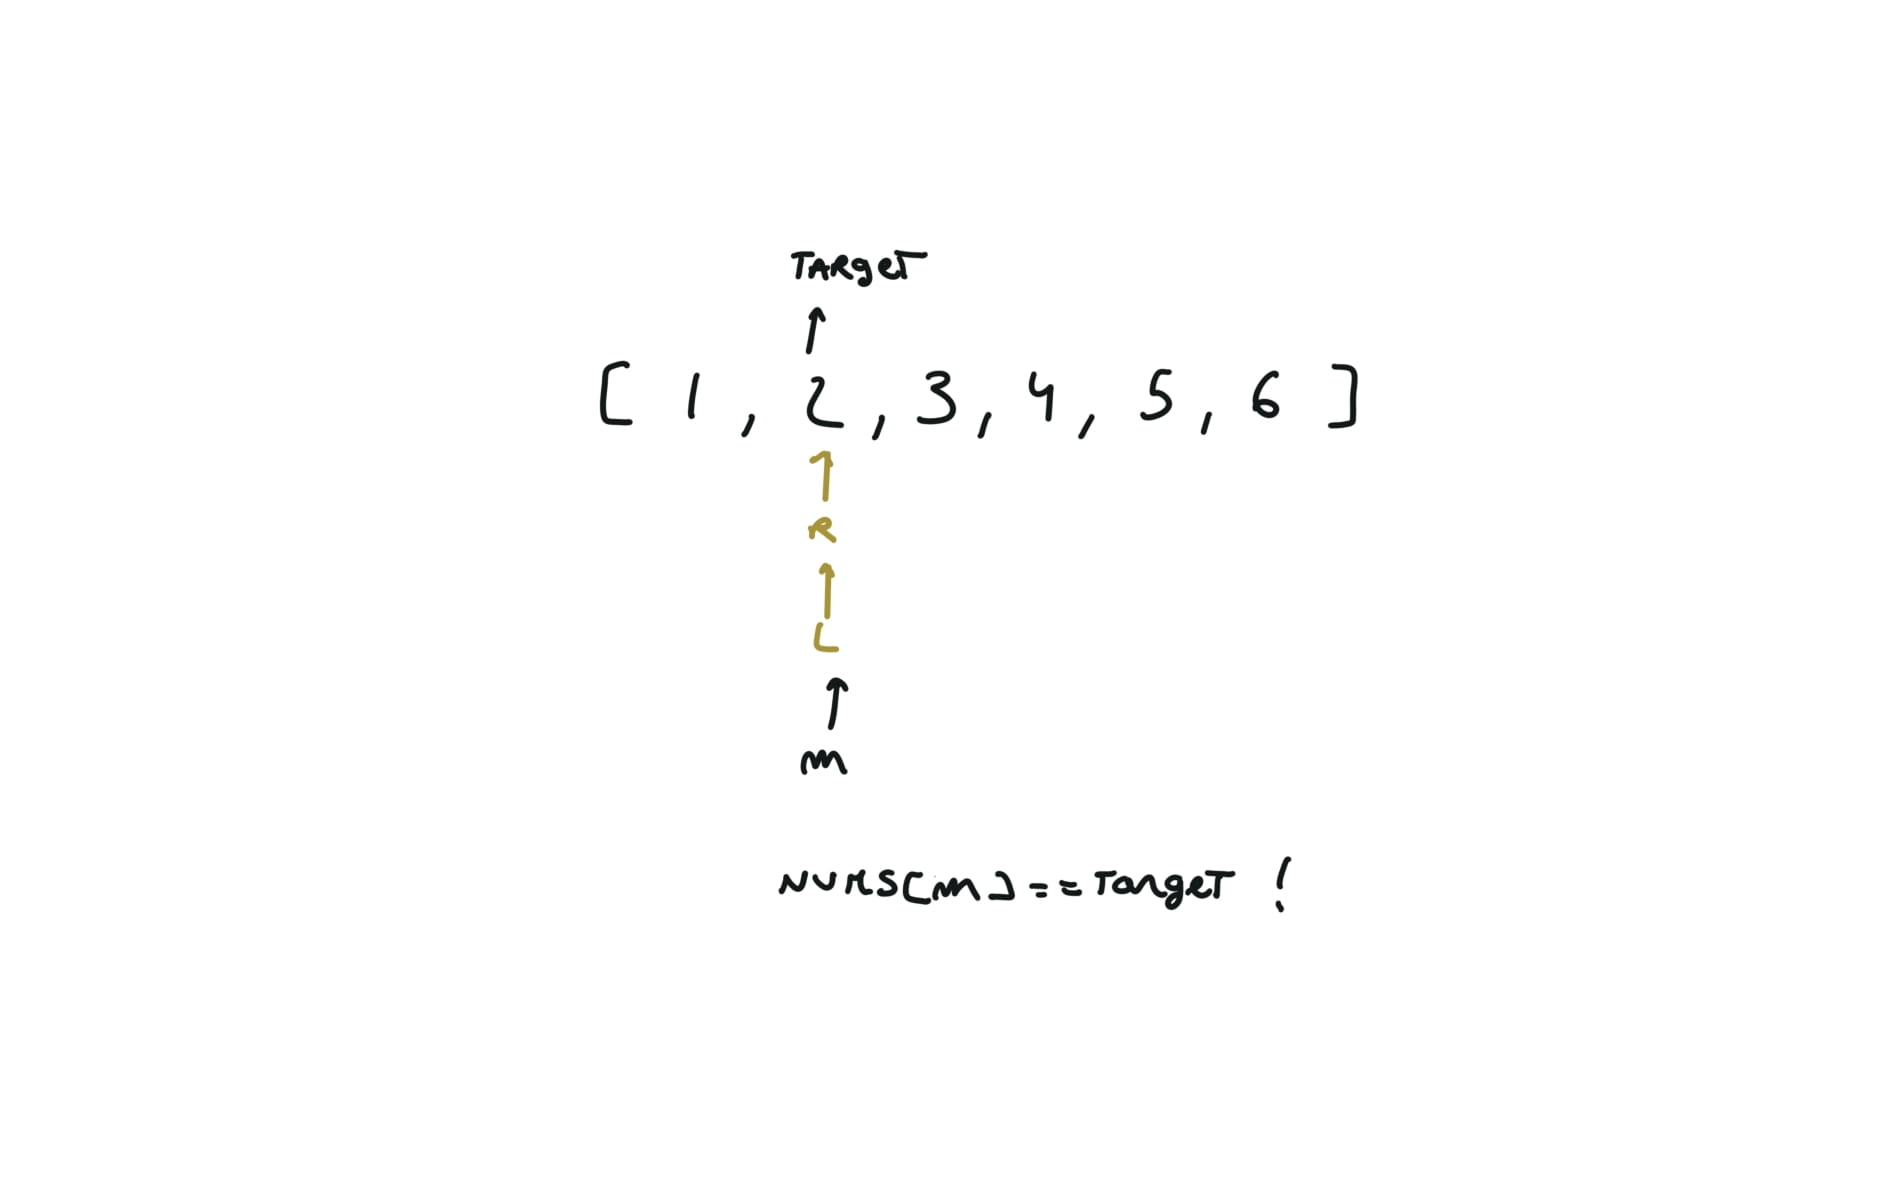 TARgeT
↑
[ 1 , 2 , 3 , 4 , 5 , 6 ]
↑
R
↑
L
↑
m
NUMS[m] == TargeT !